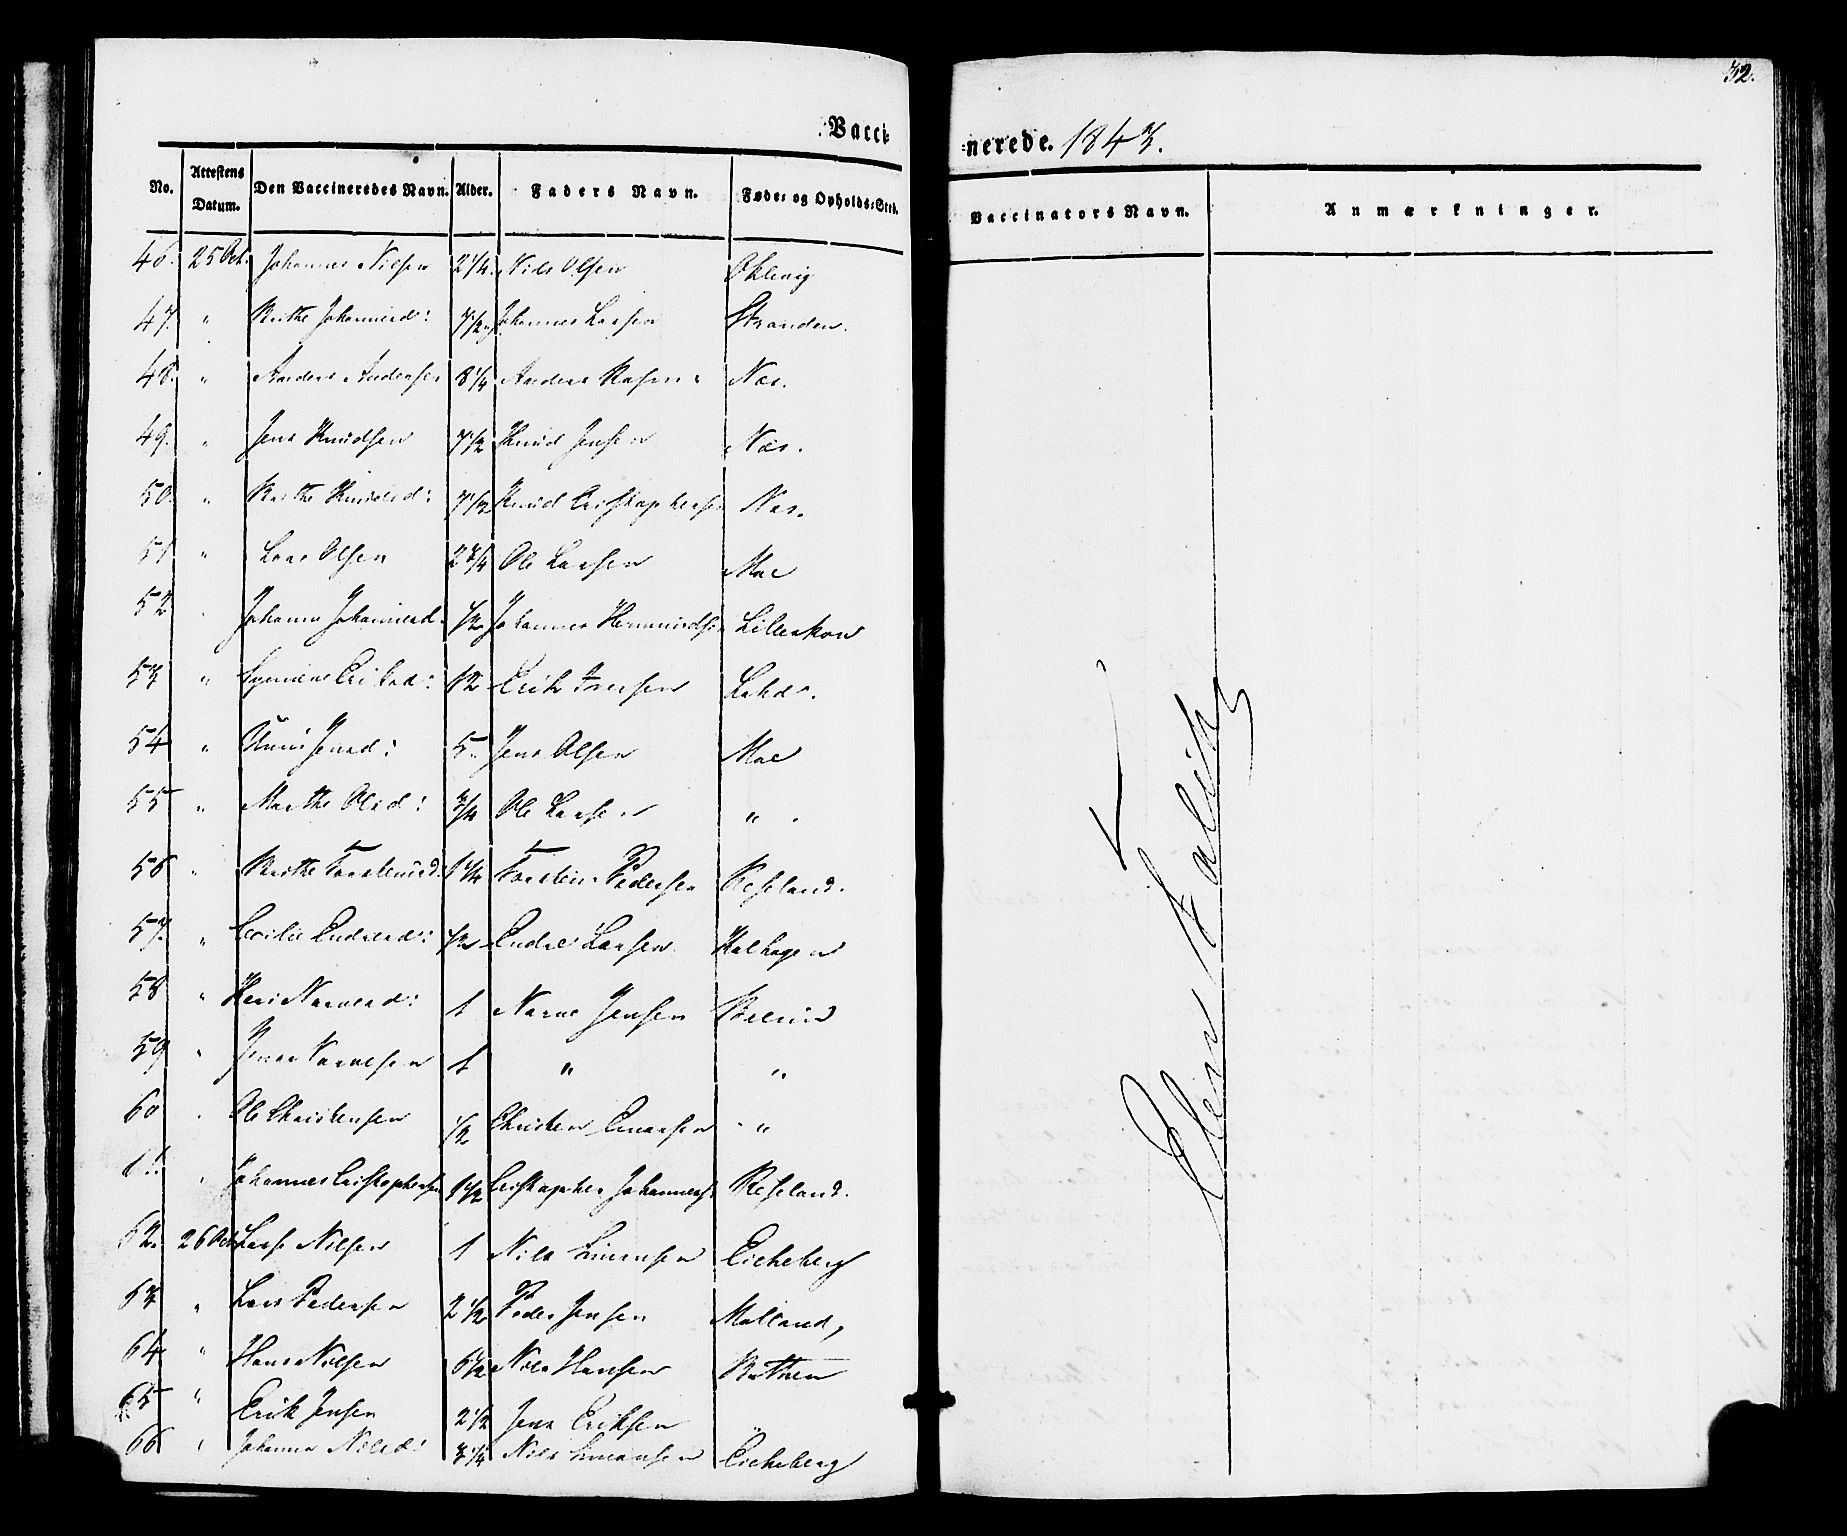 32.
Vacci=
=nerede. 1843.
No. Attestens Datum. Den Vaccineredes Navn. Alder. Faders Navn. Føde= og Opholds=Sted. Vaccinators Navn. Anmærkninger.
46. 25 Oct. Johannes Nilsen 2 1/4. Nils Olsen
47. " Brithe Johannesd: 7 1/2 Johannes Larsen Stranden.
48. " Anders Andersen 8 1/4 Anders Næs.
49. " Jens Knudsen 7 1/2 Knud Jensen Næs.
50. " Brithe Knudsd: 7 1/2 Knud Cristophersen Næs.
51 " Lars Olsen 2 3/4 Ole Larsen Moe
52 " Johanne Johannesd. 1/2 Johannes Hermundsen
53 " Eriksd: 12 Erik Iversen
54 " Jensd: 5. Jens Olsen Moe
55 " Marthe Olsd: 3/4 Ole Larsen "
56 " Brithe 1 1/4 Torsten Pedersen Refsland.
57. " Cecilie Endresd: 1/2 Endre Larsen Kalhagen
58 " Narvesd: 1 Narve Jensen
59 " Jens Narvesen 1 " "
60 " Ole Christensen 1/2 Christen Einarsen "
61. " Johannes Cristophersen 1 1/2 Cristopher Johannes Refsland.
62. 26 Oct. Lasse Nilsen 1 Nils Eicheberg
63 " Lars Pedersen 2 1/2 Peder Jensen
64 " Hans Nilsen 6 1/2 Nils Hansen
65 " Erik Jensen 2 1/2 Jens Eriksen "
66 " Johanne Nilsd: 3 1/4 Nils Eicheberg